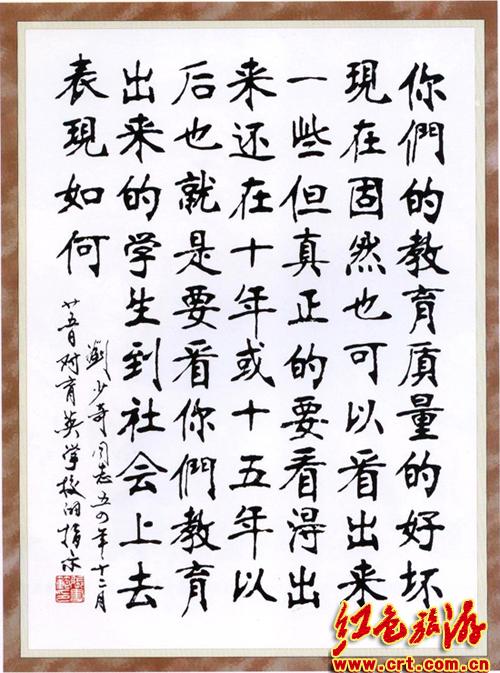 你們的教育质量的好坏
現在固然也可以看出来
一些但真正的要看得出
来还在十年或十五年以
后也就是要看你們教育
出来的学生到社会上去
表現如何
劉少奇同志五四年十二月
廿五日对育英学校的指示
红色旅游
www.crt.com.cn